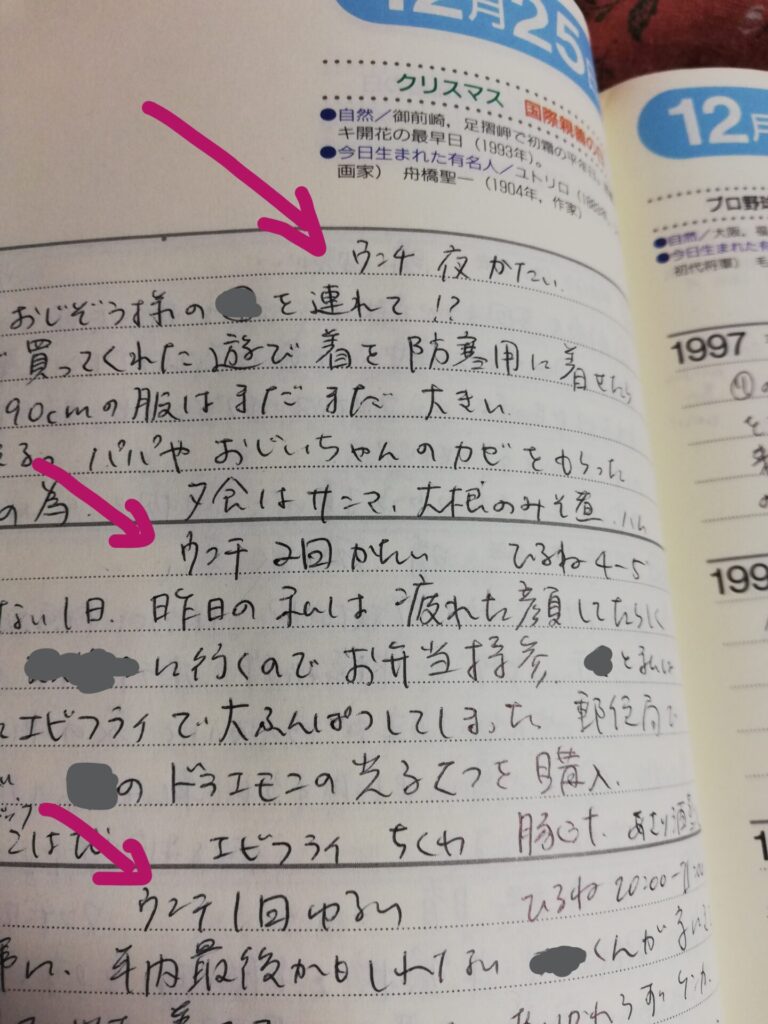 12月25
クリスマス 国際親善の
●自然／御前崎，足摺岬で初霜の平年日。
キ開花の最早日（1993年）。
●今日生まれた有名人／ユトリロ
画家） 舟橋聖一（1904年，作家）
ウンチ 夜 かたい
おじぞう様の を連れて!?
買ってくれた遊び着を防寒用に着せたら
90cmの服はまだまだ大きい
パパやおじいちゃんのカゼをもらった
の為. 夕食はサンマ、大根のみそ煮.ハム
ウンチ2回かたい ひるね4-5
ない1日. 昨日の私は疲れた顔してたらしく
に行くのでお弁当持参. と私は
エビフライで大ふんぱつしてしまった. 郵便局で
のドラエモンの光るくつを購入.
エビフライ ちくわ 豚くた. あさり酒蒸
ウンチ1回ゆるい ひるね20:00-21:00
年内最後かもしれない くんが
12月
プロ野球
●自然／大阪，福
●今日生まれた有
初代将軍） 毛
1997
199